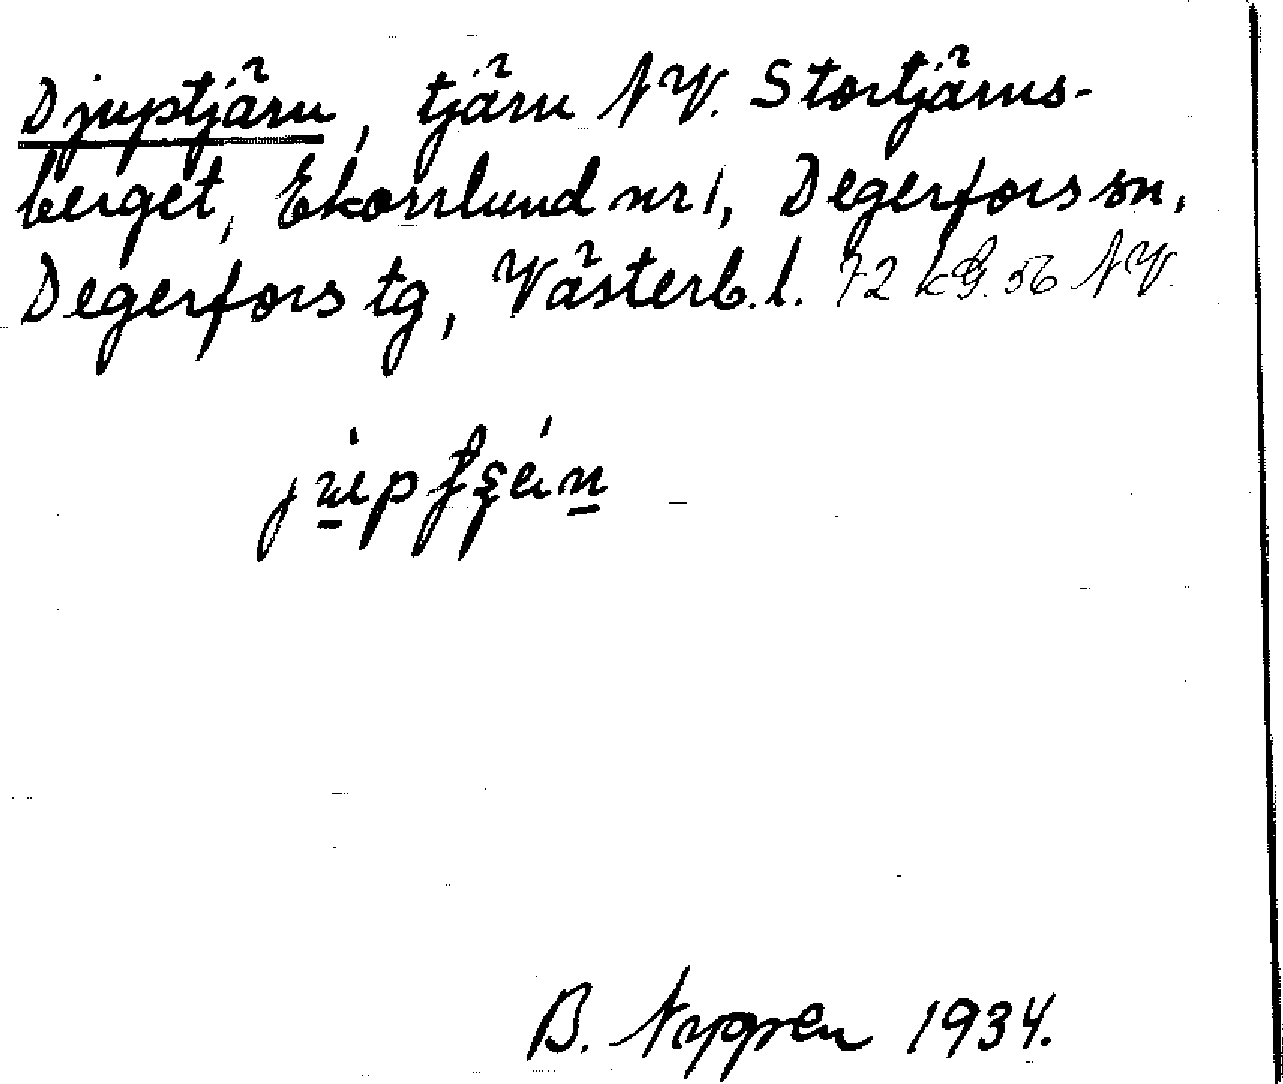 Djuptjärn, tjärn NV. Stortjärns-
berget, Ekorrlund nr 1, Degerfors sn,
Degerfors tg, Västerb. l. 72 kg. 56 NV.
B. Nygren 1934.